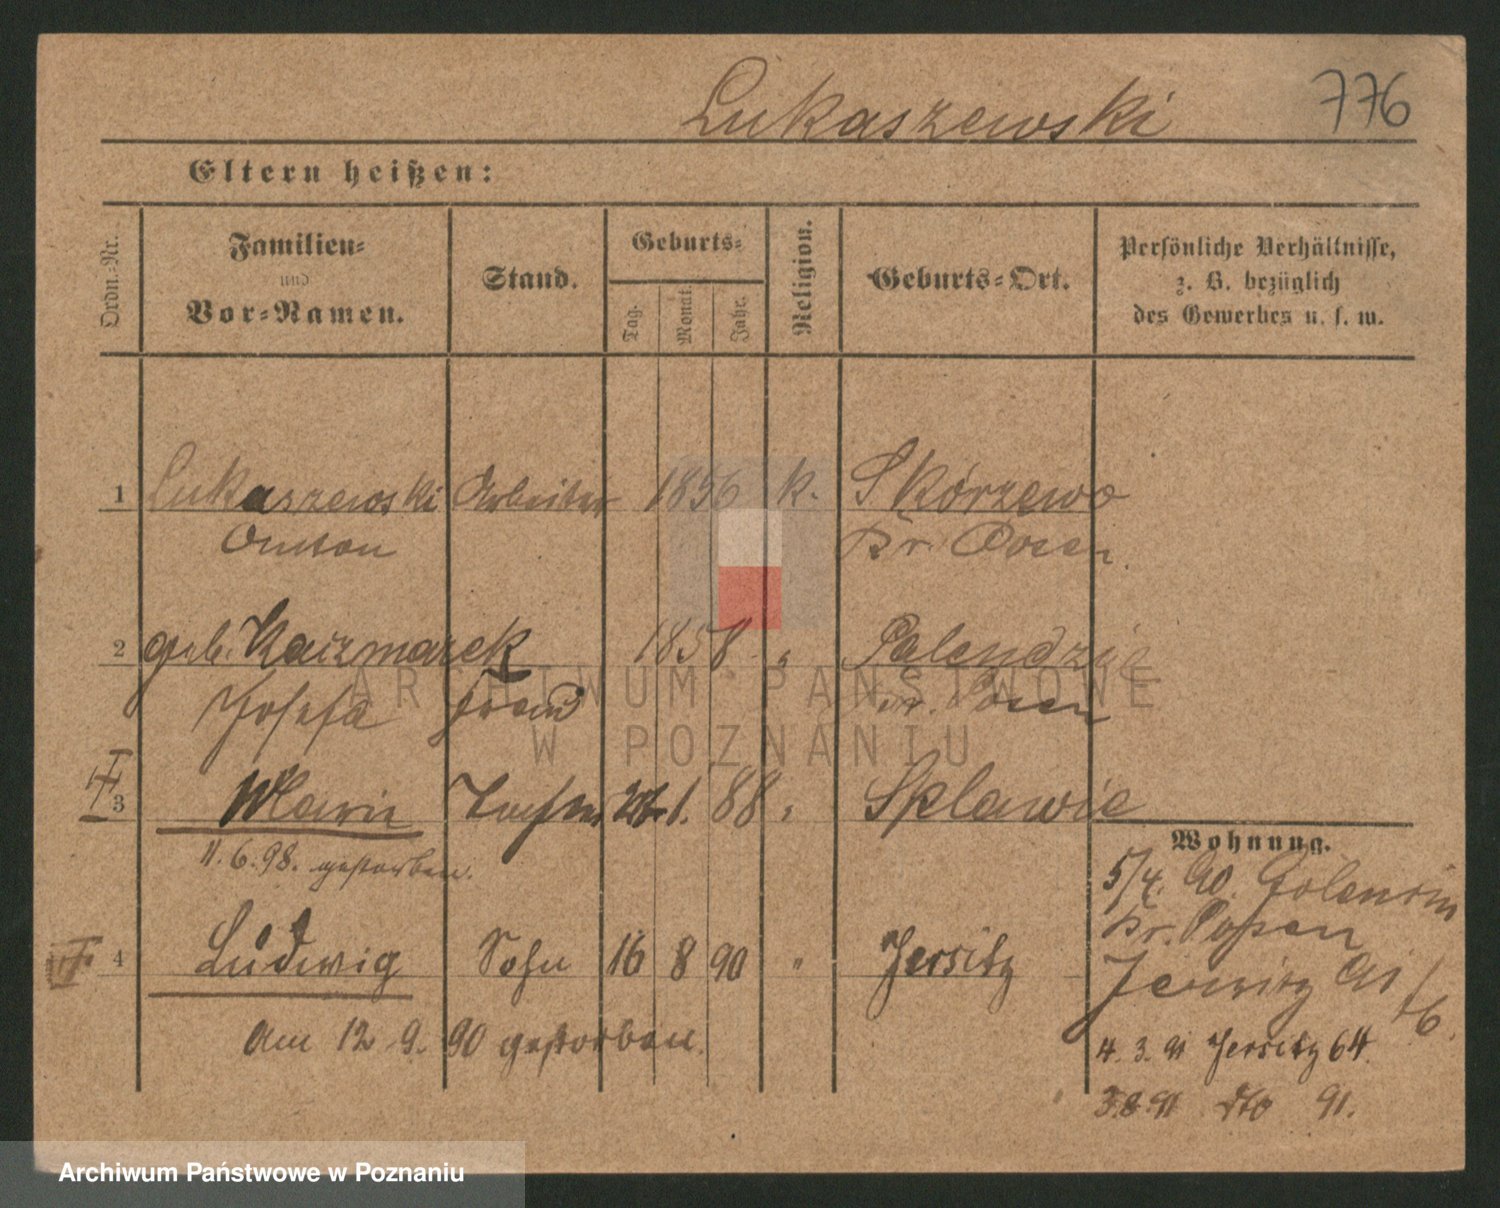 Lukaszewski 776
Eltern heißen:
Ordn.-Nr. Familien- und Vor-Namen. Stand. Geburts- Tag. Monat. Jahr. Religion. Geburts-Ort. Persönliche Verhältnisse, z. B. bezüglich des Gewerbes u. s. w.
1 Lukaszewski Arbeiter 1856 k. Skórzewo
Anton Kr. Posen
2 geb. Kaczmarek 1858 " Palendzie
Josefa Frau Kr. Posen
3 Marie Tochter 1. 88 " Sklawie
Wohnung.
11.6.98. gestorben.
5/4. 90. Golencin
Kr. Posen
4 Ludwig Sohn 16 8 90 " Jersitz
Jersitz
am 12.9.90 gestorben.
4.3.91 Jersitz 64.
3.8.91 dto 91.
ARCHIWUM PAŃSTWOWE
W POZNANIU
Archiwum Państwowe w Poznaniu